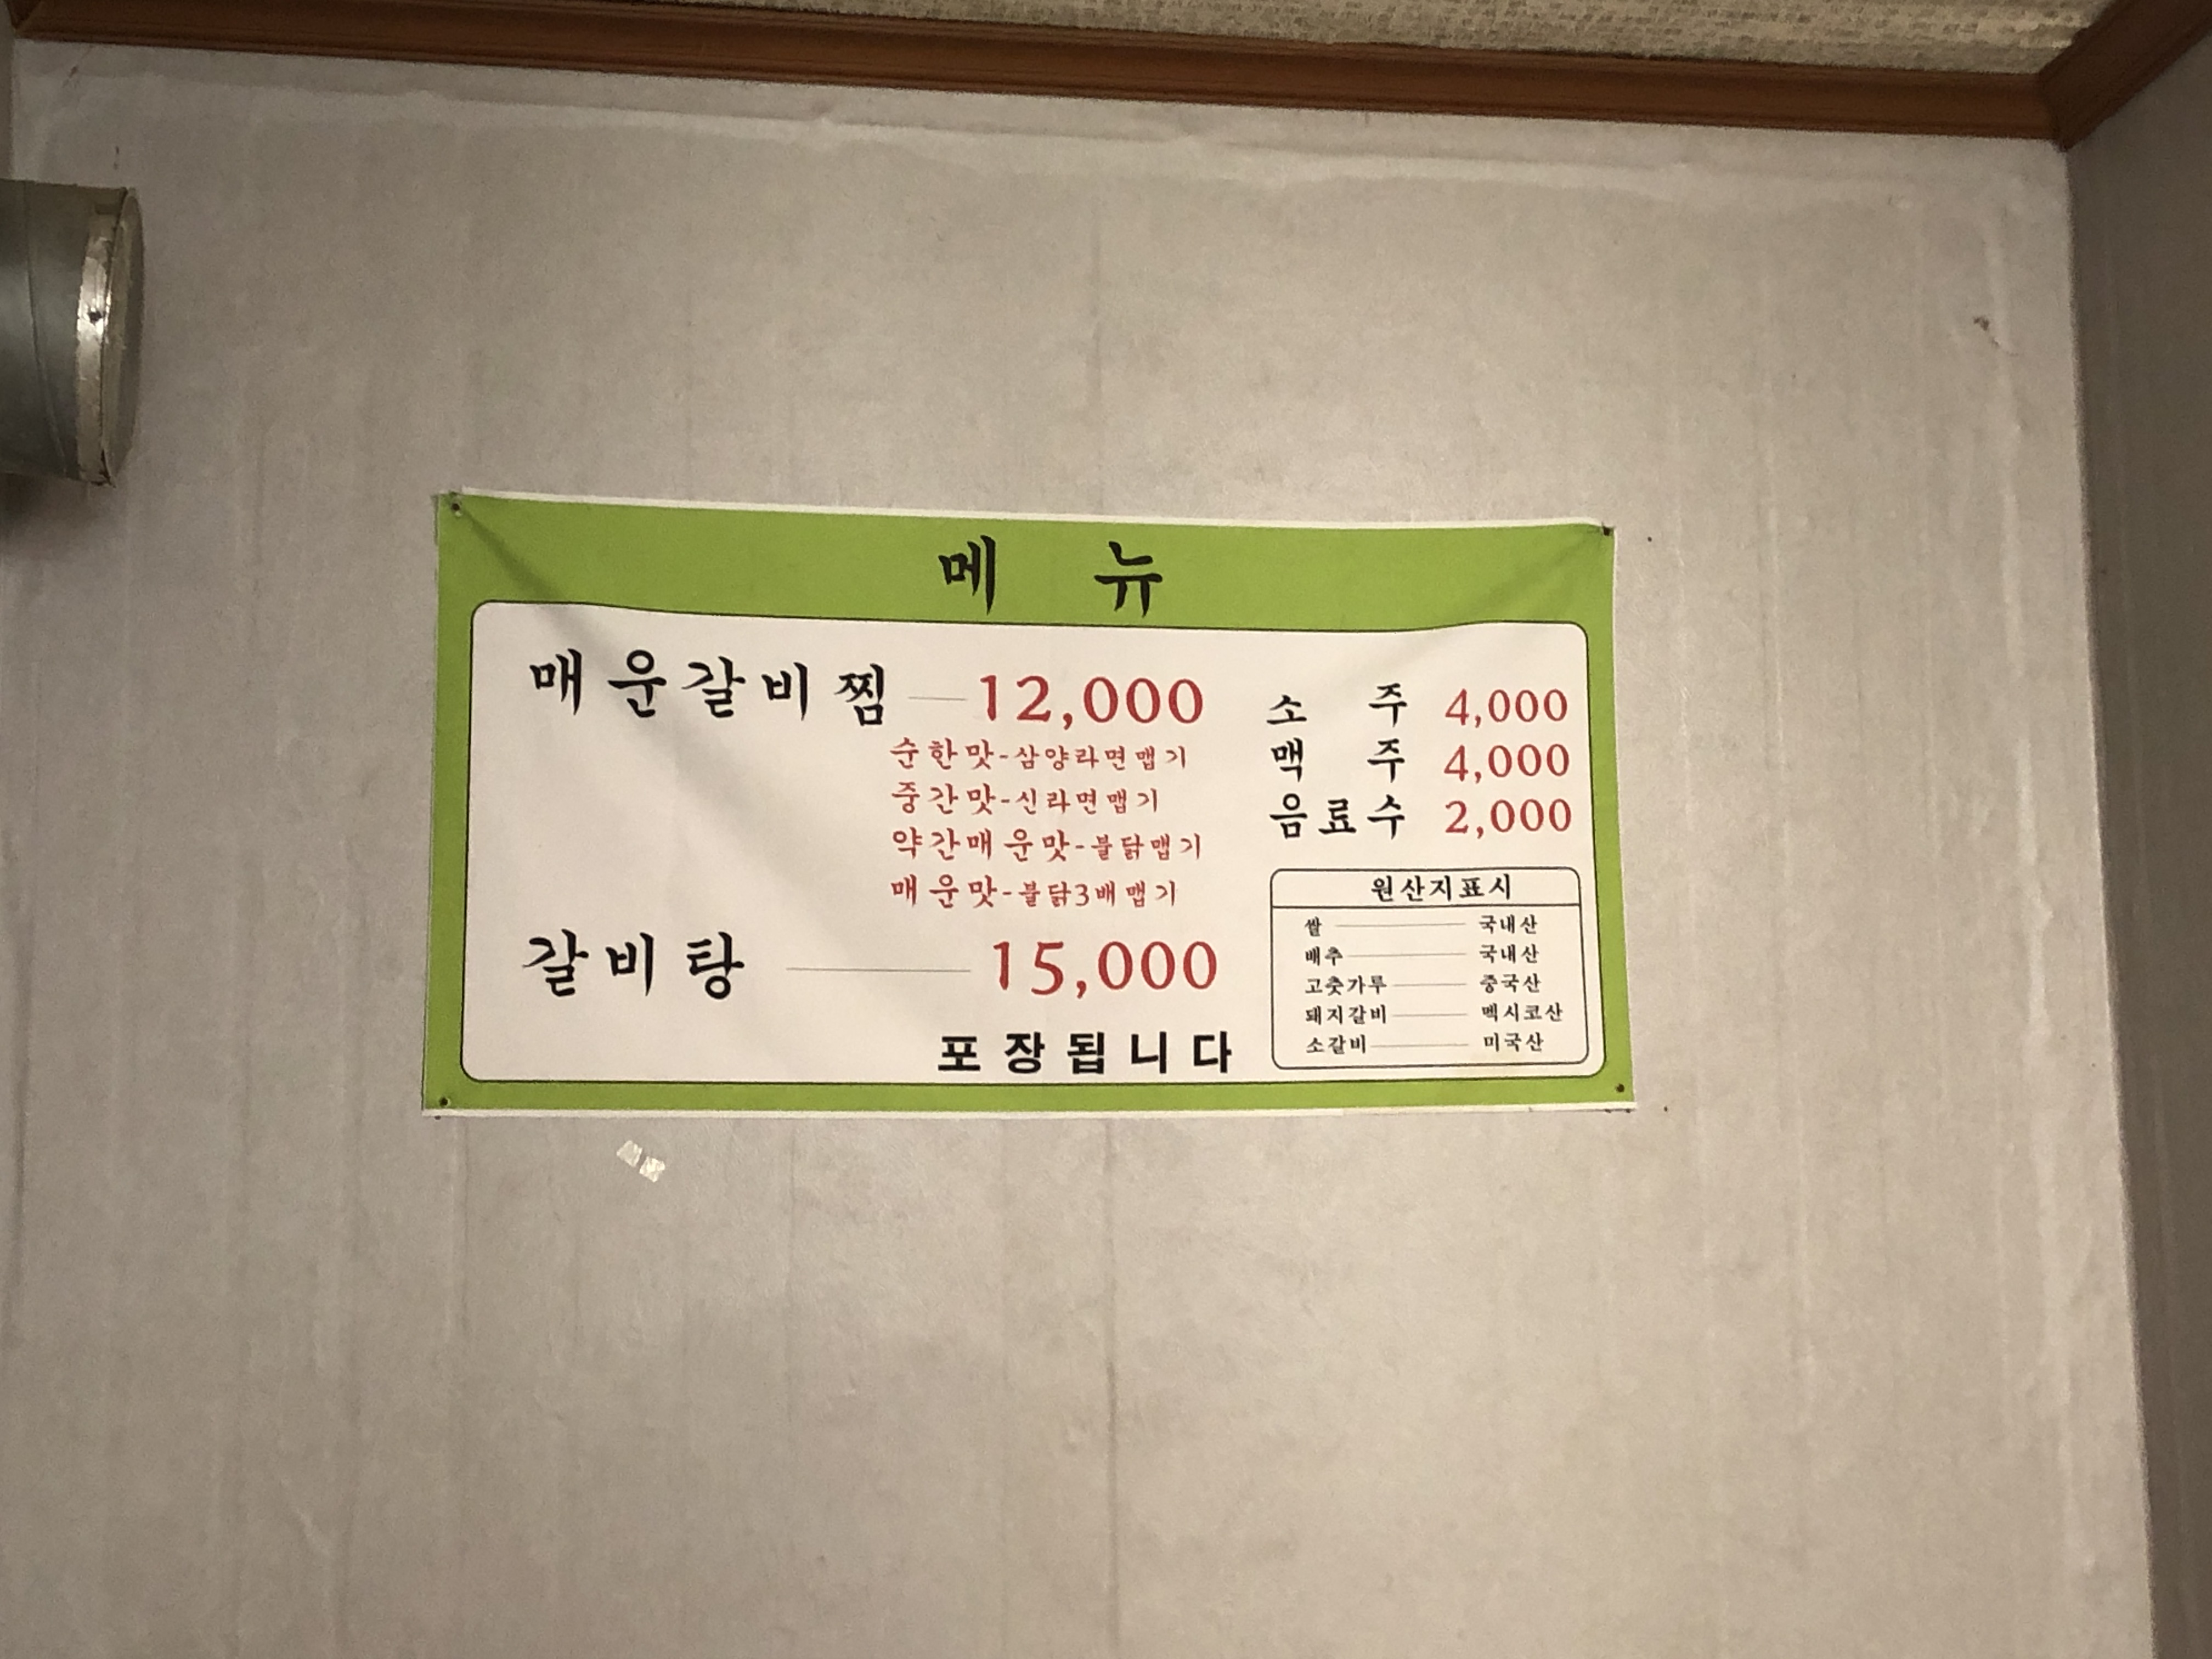 메 뉴
매운갈비찜 12,000
순한맛-삼양라면맵기
중간맛-신라면맵기
약간매운맛-불닭맵기
매운맛-불닭3배맵기
갈비탕 15,000
포장됩니다
소 주 4,000
맥 주 4,000
음료수 2,000
원산지표시
쌀 국내산
배추 국내산
고춧가루 중국산
돼지갈비 멕시코산
소갈비 미국산